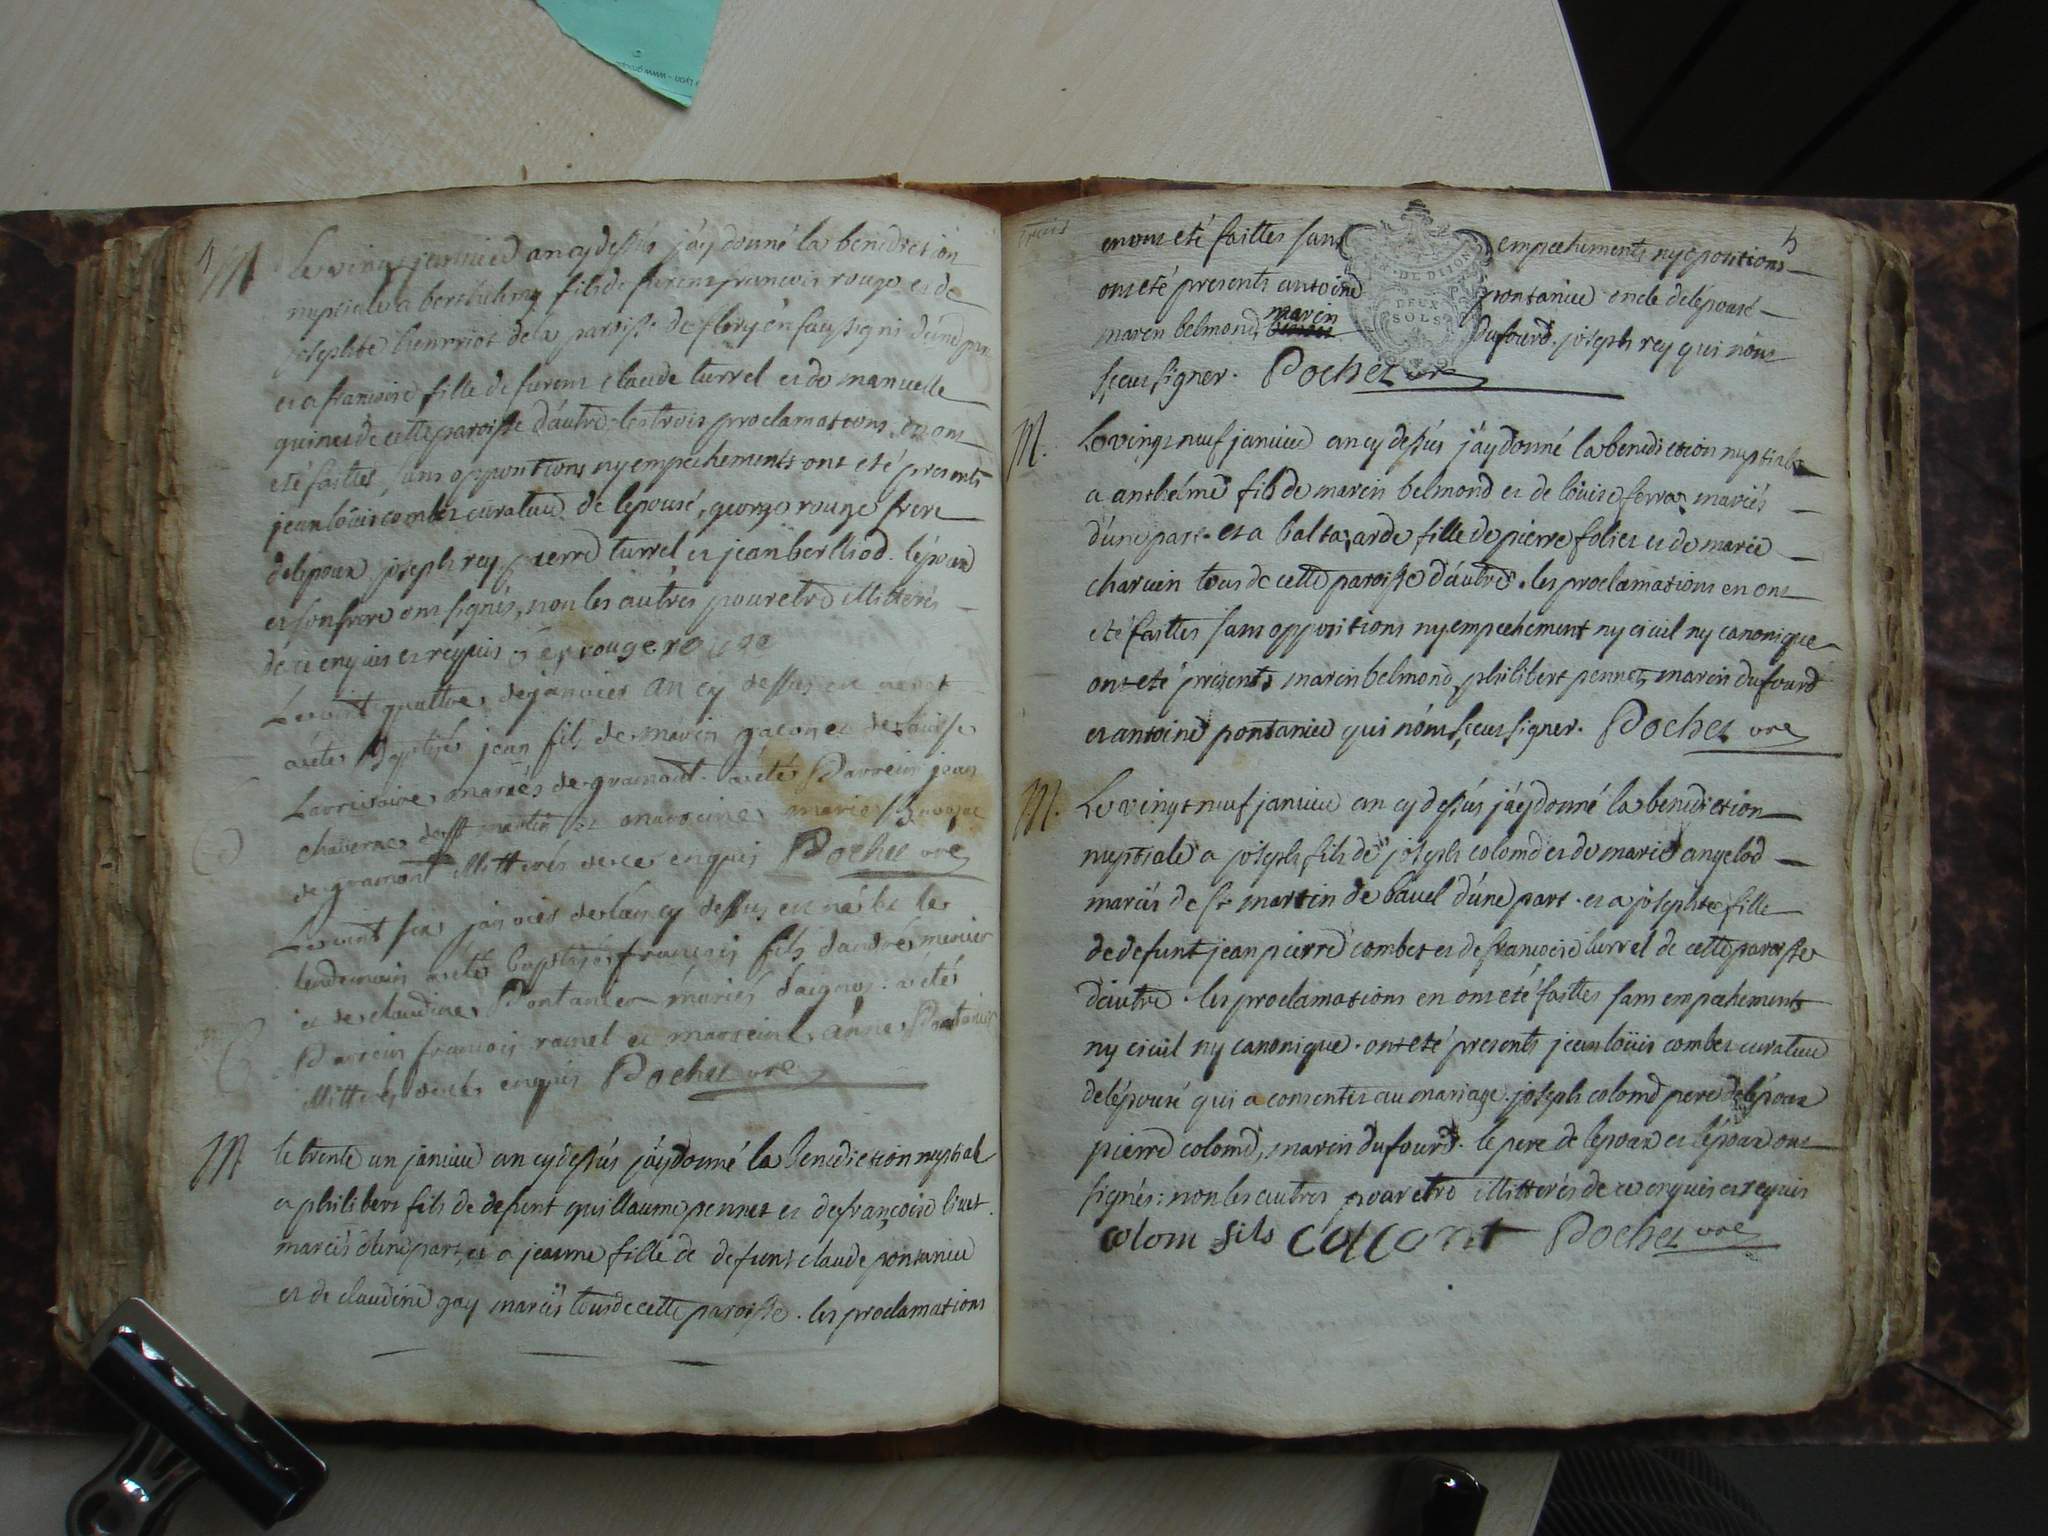 M
Le vingt janvier an cy dessus j'ay donné la benediction
nuptiale a berthelmy fils de furent francois rouge et de
josephte henrriot de la paroisse de flery en faussigni d'une part
et a francoise fille de furent claude turrel et de manuelle
guinet de cette paroisse d'autre les trois proclamations en ont
été faittes sans oppositions ny empechements ont eté presents
jean loüis combet curateur de l'epousé, george rouge frere
de lépoux joseph rey, pierre turrel et jean berthod. lépoux
et son frere ont signés, non les autres pour etre illitterés
de ce enquis et requis rouge rouge
Le vint quattre de janvier an cy dessus est né et
a eté baptisé jean fils de marin gacon et de
mariés de gramont. a eté Parrein jean
de st martin et marreine marie
de gramont illitterés de ce enquis Pochet vre
Le vint six janvier de l'an cy dessus est né et le
lendemain a eté baptisé francois fils d'andré mercier
et de claudine Pontanier mariés d'aignos. a eté
Parrein francois et marreine anne Pontanier
illitterés de ce enquis Pochet vre
M
le trente un janvier an cy dessus j'ay donné la benediction nuptial
a philibert fils de defunt guillaume pennet et de françoise livet
mariés d'une part, et a jeanne fille de defunt claude pontanier
et de claudine gay mariés tous de cette paroisse. les proclamations
5
en ont eté faittes sans empechements ny opositions
DE DIJON
DEUX
SOLS
ont eté presents antoine pontanier oncle de lépouse
marin belmond, marin dufourd. joseph rey qui n'ont
sceu signer. Pochet vre
M.
Le vingt neuf janvier an cy dessus j'ay donné la benediction nuptiale
a anthelme fils de marin belmond et de loüise ferra mariés
d'une part. et a baltazarde fille de pierre foliet et de marie
charvin tous de cette paroisse d'autre. les proclamations en ont
eté faittes sans oppositions ny empechement ny civil ny canonique
ont eté présents marin belmond, philibert pennet, marin dufourd
et antoine pontanier qui n'ont sceu signer. Pochet vre
M.
Le vingt neuf janvier an cy dessus j'ay donné la benediction
nuptiale a joseph fils de joseph colomd et de marie angelod
mariés de st martin de bavel d'une part. et a josephte fille
de defunt jean pierre combet et de francoise turrel de cette paroisse
d'autre. les proclamations en ont eté faittes sans empechements
ny civil ny canonique. ont eté presents jean loüis combet curateur
de lépouse qui a consentis au mariage. joseph colomd pere de lépoux
pierre colomd, marin dufourd. le pere de lepoux et lépoux ont
signés: non les autres pour etre illitterés de ce enquis et requis
colom fils collomt Pochet vre